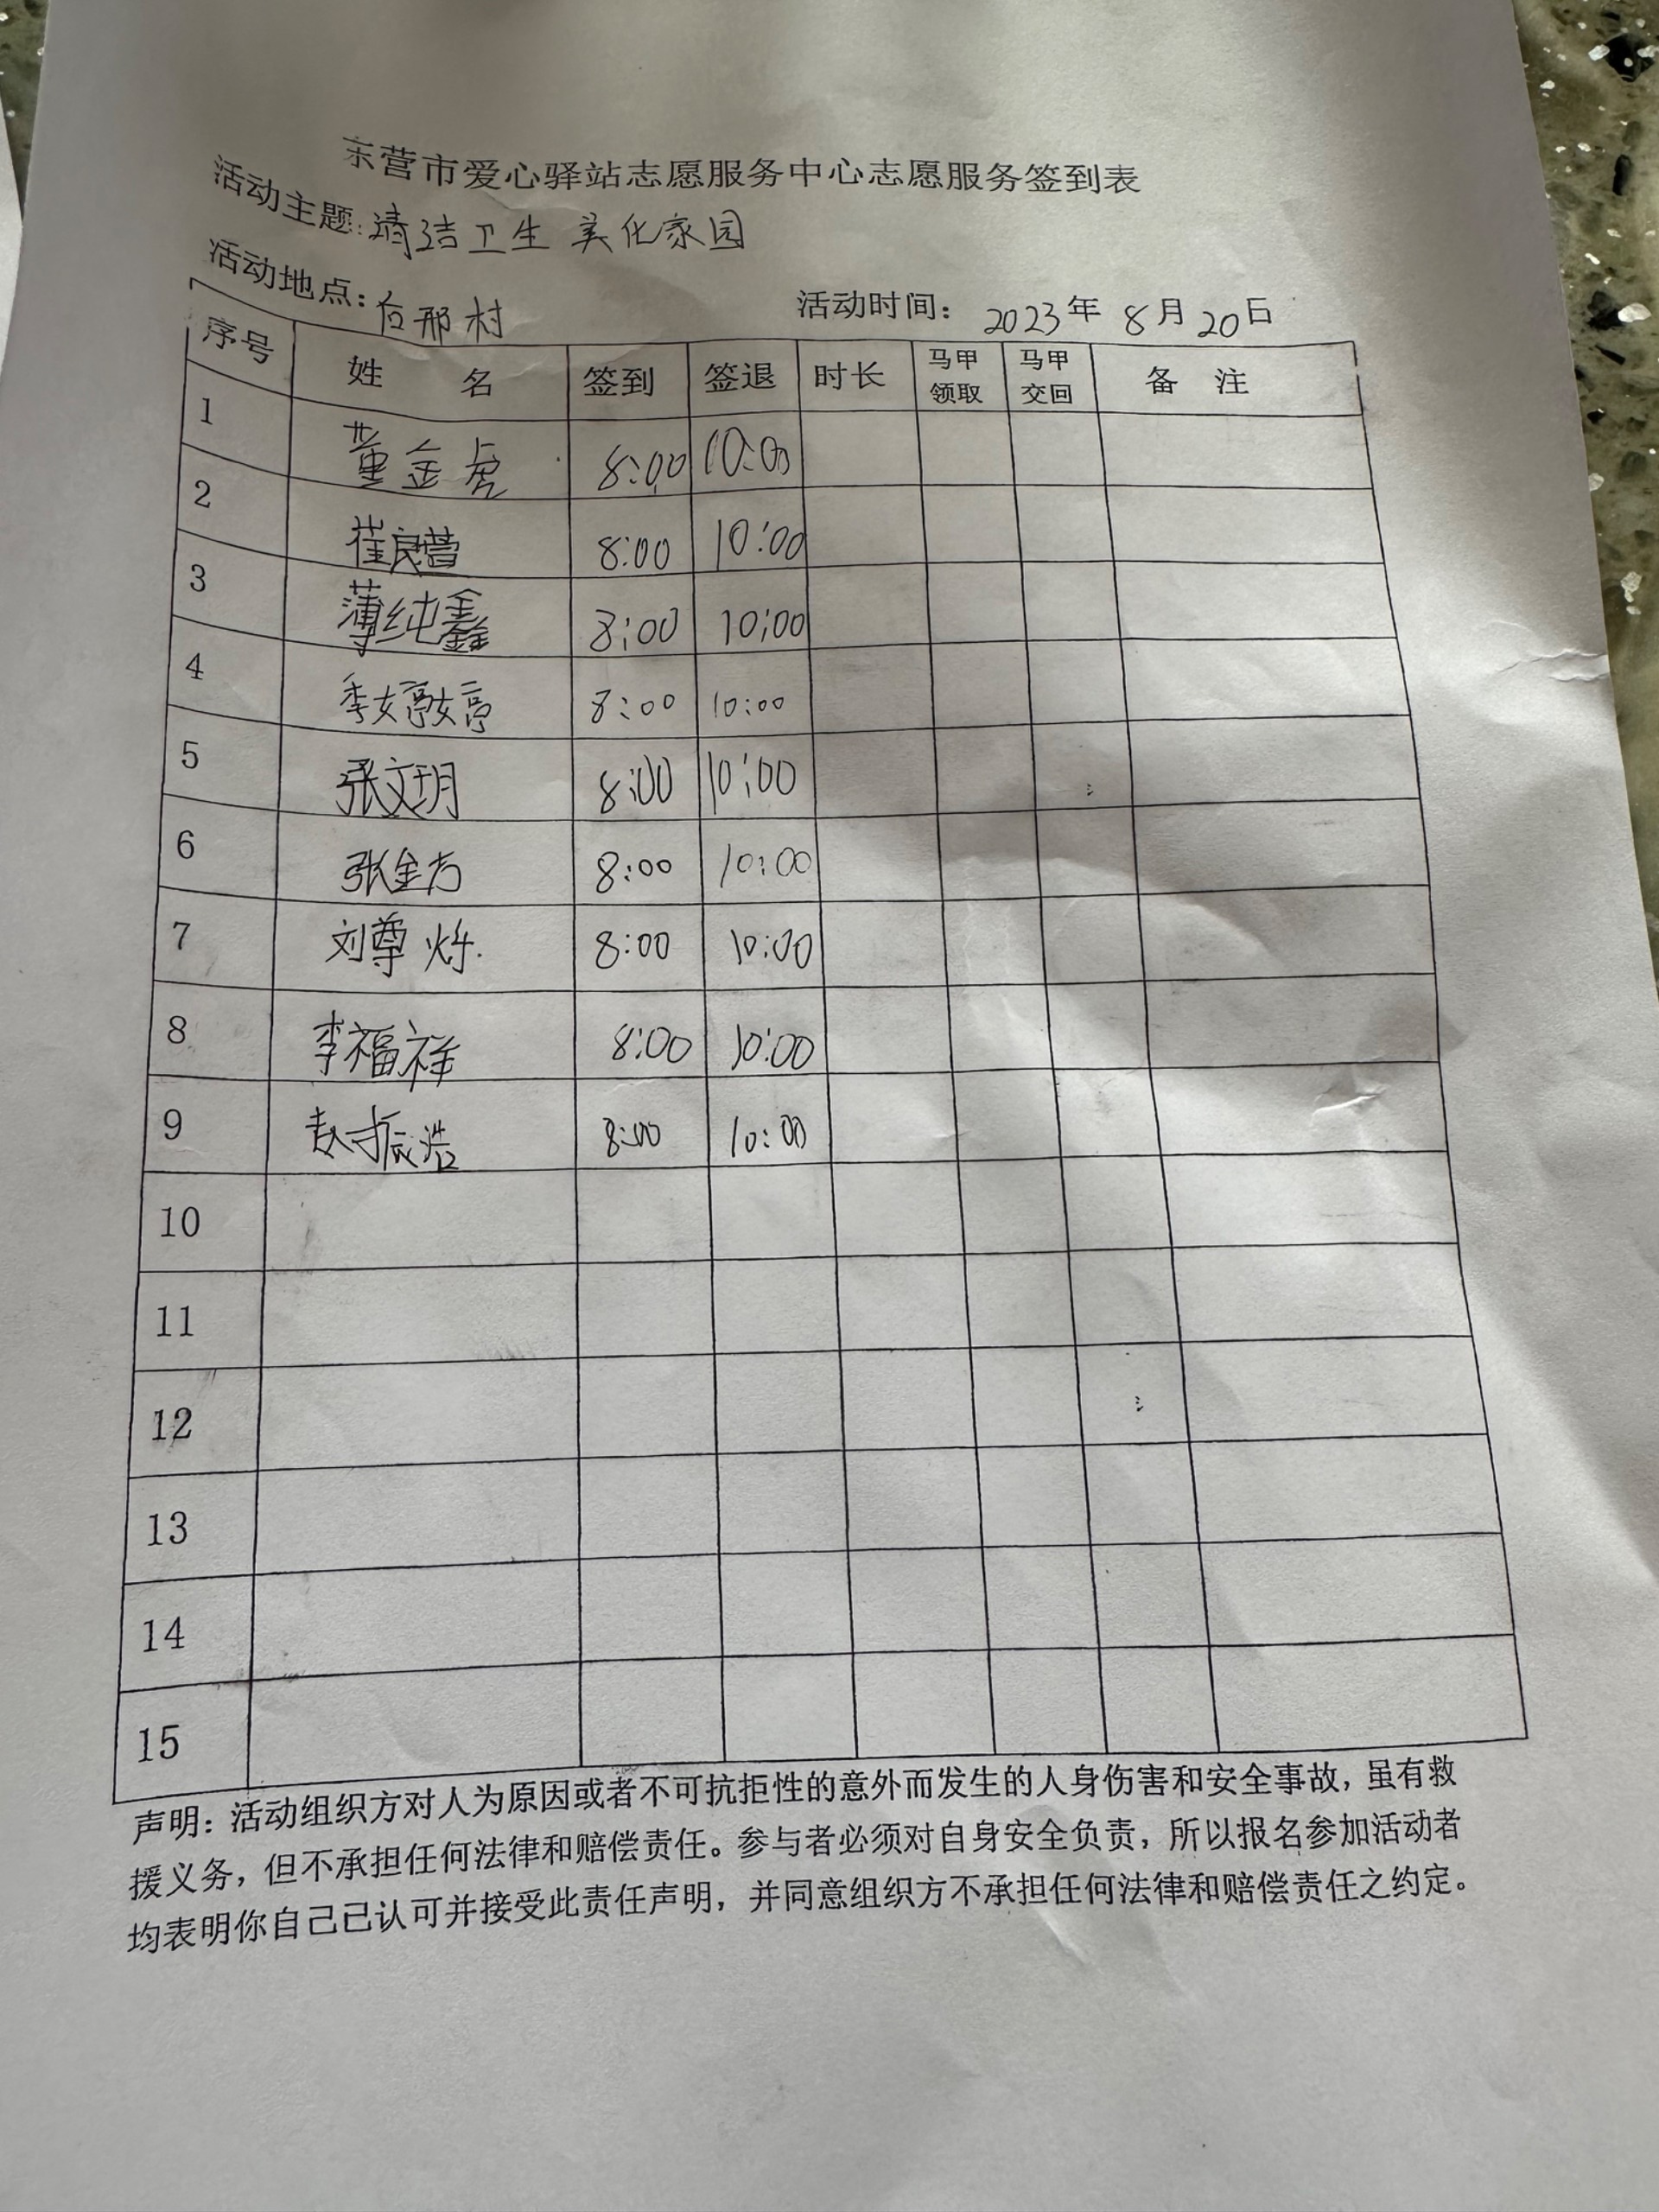 东营市爱心驿站志愿服务中心志愿服务签到表
活动主题:清洁卫生 美化家园
活动地点: 后邢村 活动时间: 2023年 8月20日
序号 姓 名 签到 签退 时长 马甲领取 马甲交回 备 注
1 董金虎 8:00 10:00
2 崔良营 8:00 10:00
3 薄纯鑫 8:00 10:00
4 季婷婷 8:00 10:00
5 张文玥 8:00 10:00
6 张金方 8:00 10:00
7 刘尊烁 8:00 10:00
8 李福祥 8:00 10:00
9 赵振浩 8:00 10:00
10
11
12
13
14
15
声明:活动组织方对人为原因或者不可抗拒性的意外而发生的人身伤害和安全事故,虽有救
援义务,但不承担任何法律和赔偿责任。参与者必须对自身安全负责,所以报名参加活动者
均表明你自己已认可并接受此责任声明,并同意组织方不承担任何法律和赔偿责任之约定。